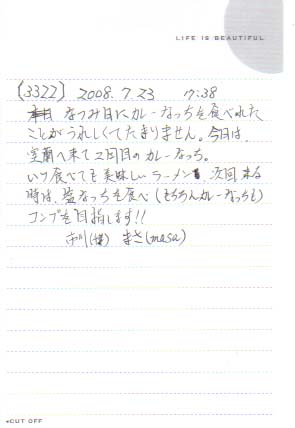 LIFE IS BEAUTIFUL
(3322) 2008.7.23 17:38
なつみ日にカレーなっちを食べれた
ことがうれしくてたまりません。今日は、
室蘭へ来て2回目のカレーなっち。
いつ食べても美味しいラーメン 次回来る
時は、塩なっちを食べ(もちろんカレーなっちも)
コンプを目指します!!
まさ(masa)
CUT OFF